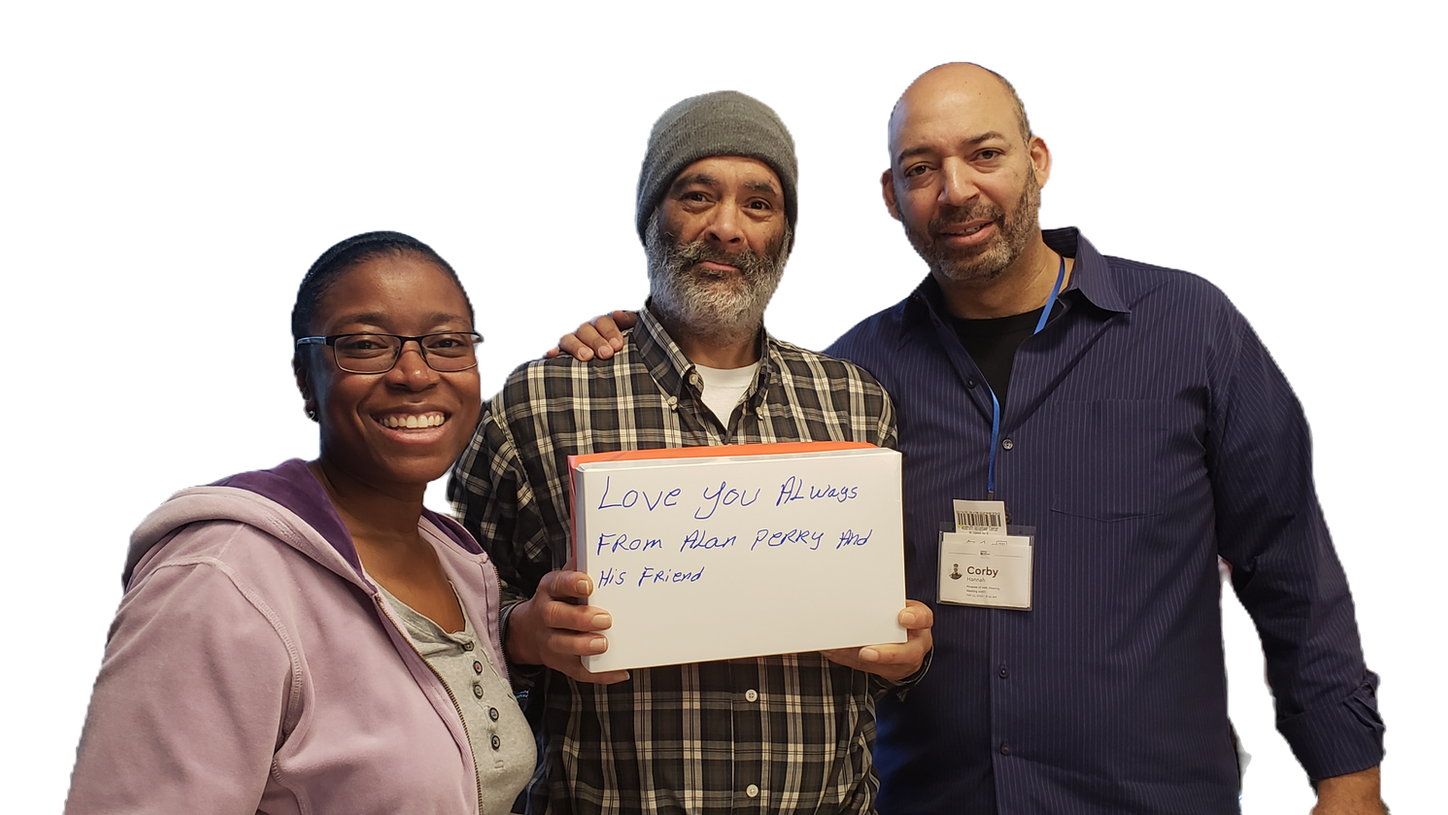 Love you ALways
FRom ALan PERRy And
His FRiend
Corby
Hannah